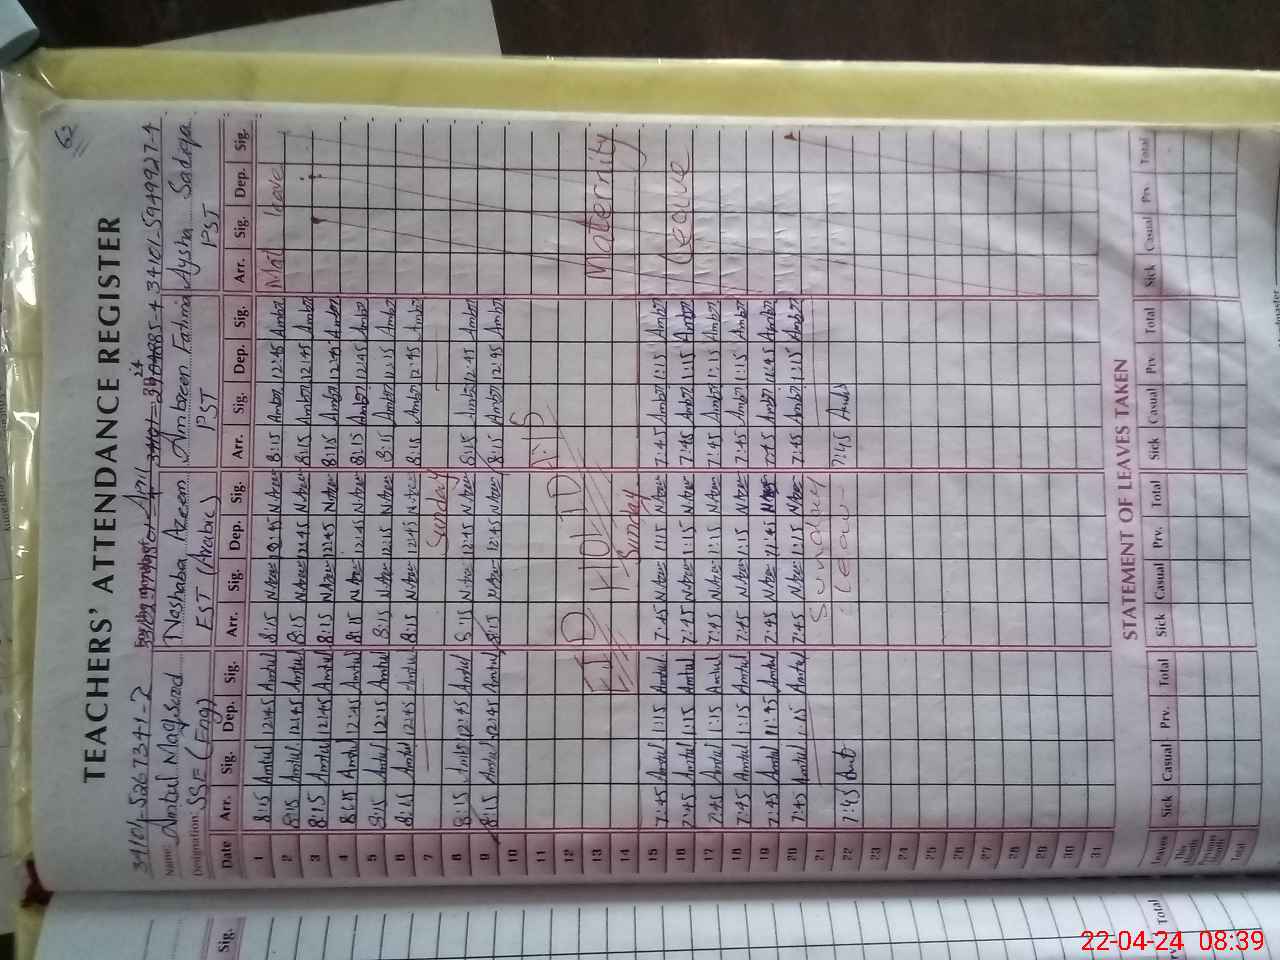 62
TEACHERS' ATTENDANCE REGISTER
34101-5267341-2 For the month of April 24 34101-5949927-4
Name: Amtul Maqsood Nashaba Azeem Ambreen Fatima Aysha Sadeqa
Designation: SSE (Eng) EST (Arabic) PST PST
Date Arr. Sig. Dep. Sig. Arr. Sig. Dep. Sig. Arr. Sig. Dep. Sig. Arr. Sig. Dep. Sig.
1 8:15 Amtul 12:45 Amtul 8:15 N.Azee 12:45 N.Azee 8:15 Amb 12:45 Amb Mat leave
2 8:15 Amtul 12:45 Amtul 8:15 N.Azee 12:45 N.Azee 8:15 Amb 12:45 Amb
3 8:15 Amtul 12:45 Amtul 8:15 N.Azee 12:45 N.Azee 8:15 Amb 12:45 Amb
4 8:15 Amtul 12:45 Amtul 8:15 N.Azee 12:45 N.Azee 8:15 Amb 12:45 Amb
5 8:15 Amtul 12:15 Amtul 8:15 N.Azee 12:15 N.Azee 8:15 Amb 12:15 Amb
6 8:15 Amtul 12:45 Amtul 8:15 N.Azee 12:45 N.Azee 8:15 Amb 12:45 Amb
7 Sunday
8 8:15 Amtul 12:45 Amtul 8:15 N.Azee 12:45 N.Azee 8:15 Amb 12:45 Amb
9 8:15 Amtul 12:45 Amtul 8:15 N.Azee 12:45 N.Azee 8:15 Amb 12:45 Amb
10
11
12 EID HOLIDAYS
13 Maternity
14 Sunday
15 7:45 Amtul 1:15 Amtul 7:45 N.Azee 1:15 N.Azee 7:45 Amb 1:15 Amb Leave
16 7:45 Amtul 1:15 Amtul 7:45 N.Azee 1:15 N.Azee 7:45 Amb 1:15 Amb
17 7:45 Amtul 1:15 Amtul 7:45 N.Azee 1:15 N.Azee 7:45 Amb 1:15 Amb
18 7:45 Amtul 1:15 Amtul 7:45 N.Azee 1:15 N.Azee 7:45 Amb 1:15 Amb
19 7:45 Amtul 11:45 Amtul 7:45 N.Azee 11:45 N.Azee 7:45 Amb 11:45 Amb
20 7:45 Amtul 1:15 Amtul 7:45 N.Azee 1:15 N.Azee 7:45 Amb 1:15 Amb
21 Sunday
22 7:45 Amt Leave 7:45 Amb
23
24
25
26
27
28
29
30
31
STATEMENT OF LEAVES TAKEN
Leaves Sick Casual Prv. Total Sick Casual Prv. Total Sick Casual Prv. Total Sick Casual Prv. Total
This Month
Previous Month
Total
Sig.
Total
22-04-24 08:39